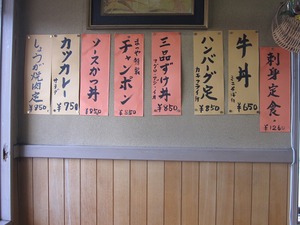 刺身定食
牛丼
¥650
ハンバーグ定
¥850
三品ずけ丼
¥850
チャンポン
¥850
ソースかつ丼
¥850
カツカレー
サラダ
¥750
しょうが焼肉定
¥850